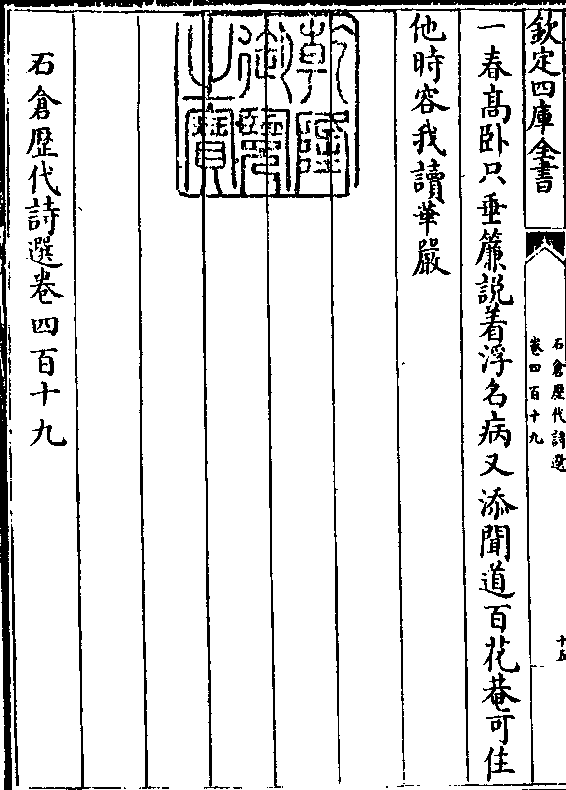 欽定四庫全書
石倉歷代詩選
卷四百十九
十五
一春高卧只垂簾説着浮名病又添聞道百花菴可住
他時容我讀華嚴
乾隆御覽之寳
石倉歷代詩選卷四百十九